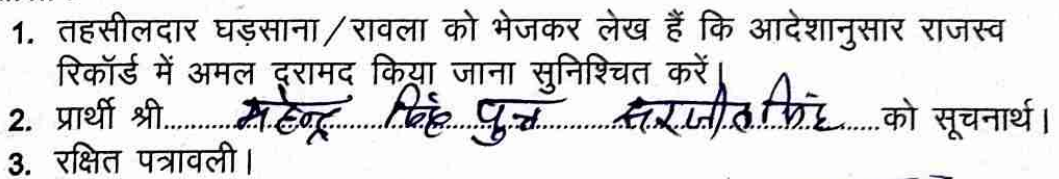 1. तहसीलदार घड़साना/रावला को भेजकर लेख हैं कि आदेशानुसार राजस्व
रिकॉर्ड में अमल दरामद किया जाना सुनिश्चित करें।
2. प्रार्थी श्री......महेन्द्र सिंह पुत्र सरजीत सिंह......को सूचनार्थ।
3. रक्षित पत्रावली।